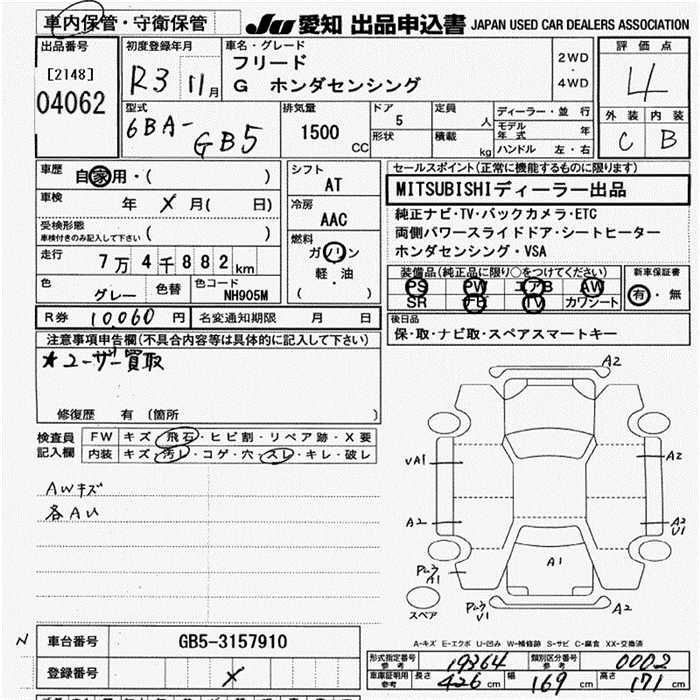 車内保管・守衛保管
JU 愛知 出品申込書 JAPAN USED CAR DEALERS ASSOCIATION
出品番号
[2148]
04062
初度登録年月
R3 11月
車名・グレード
フリード
G ホンダセンシング
2WD
・
4WD
評価点
4
外装 内装
C B
型式
6BA-GB5
排気量
1500 CC
ドア
5
形状
定員
人
積載
kg
ディーラー・並行
モデル年式 年
ハンドル 左・右
車歴
自家用・( )
車検
年 × 月( 日)
受検形態
車検付きのみ記入して下さい ( )
走行
7万4千882km
色
グレー
色替
色コード
NH905M
シフト
AT
冷房
AAC
燃料
ガソリン
軽・油
( )
セールスポイント(正常に機能するものに限ります)
MITSUBISHIディーラー出品
純正ナビ・TV・バックカメラ・ETC
両側パワースライドドア・シートヒーター
ホンダセンシング・VSA
装備品(純正品に限り○をつけてください)
PS PW エアB AW
SR TV カワシート
新車保証書
有・無
R券 10,060 円 名変通知期限 月 日
後日品
保・取・ナビ取・スペアスマートキー
注意事項申告欄(不具合内容等は具体的に記入して下さい)
★ユーザー買取
修復歴 有 (箇所 )
検査員記入欄
FW キズ・飛石・ヒビ割・リペア跡・X要
内装 キズ・汚レ・コゲ・穴・スレ・キレ・破レ
AWキズ
各AU
A2
UA1
A2
A2
A2
U1
A1
A1
U1
A2
スペア
A-キズ E-エクボ U-凹み W-補修跡 S-サビ C-腐食 XX-交換済
N
車台番号 GB5-3157910
登録番号 ×
形式指定番号参考 19264 類別区分番号参考 0002
車庫証明用参考 長さ 426 cm 幅 169 cm 高さ 171 cm